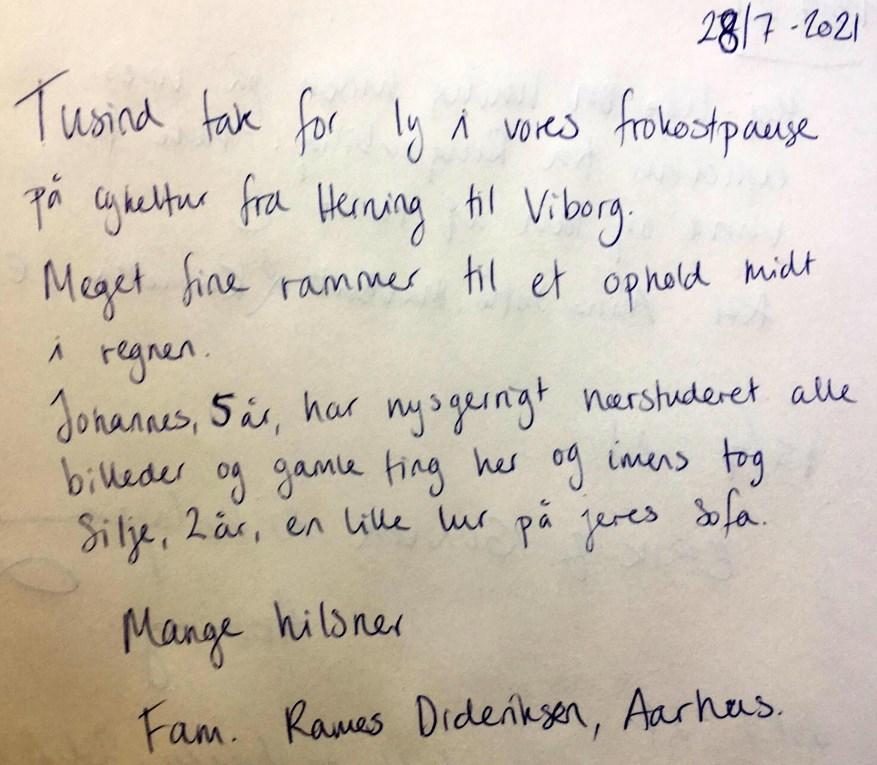 28/7-2021
Tusind tak for ly i vores frokostpause
på cykeltur fra Herning til Viborg.
Meget fine rammer til et ophold midt
i regnen.
Johannes, 5 år, har nysgerrigt nærstuderet alle
billeder og gamle ting her og imens tog
Silje, 2 år, en lille lur på jeres sofa.
Mange hilsner
Fam. Rames Dideriksen, Aarhus.